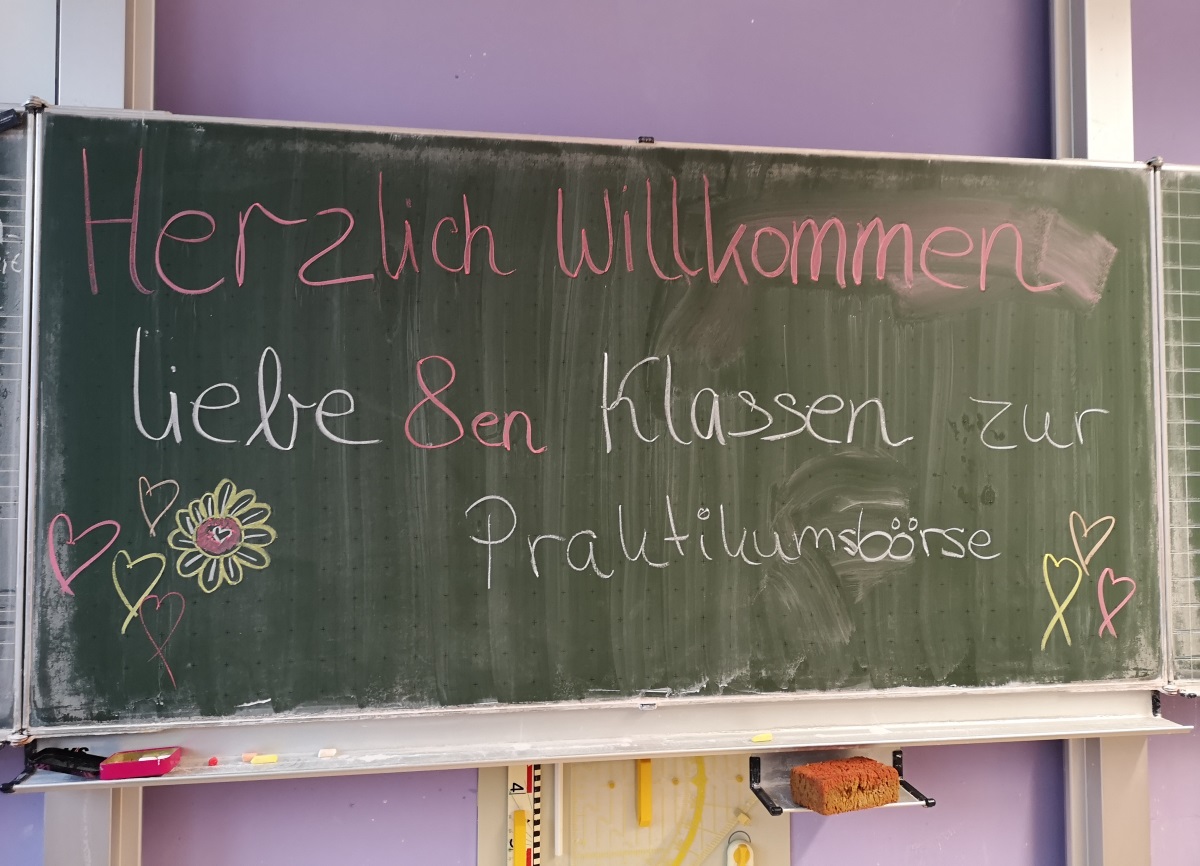 Herzlich Willkommen
liebe 8en Klassen zur
Praktikumsbörse
4
5